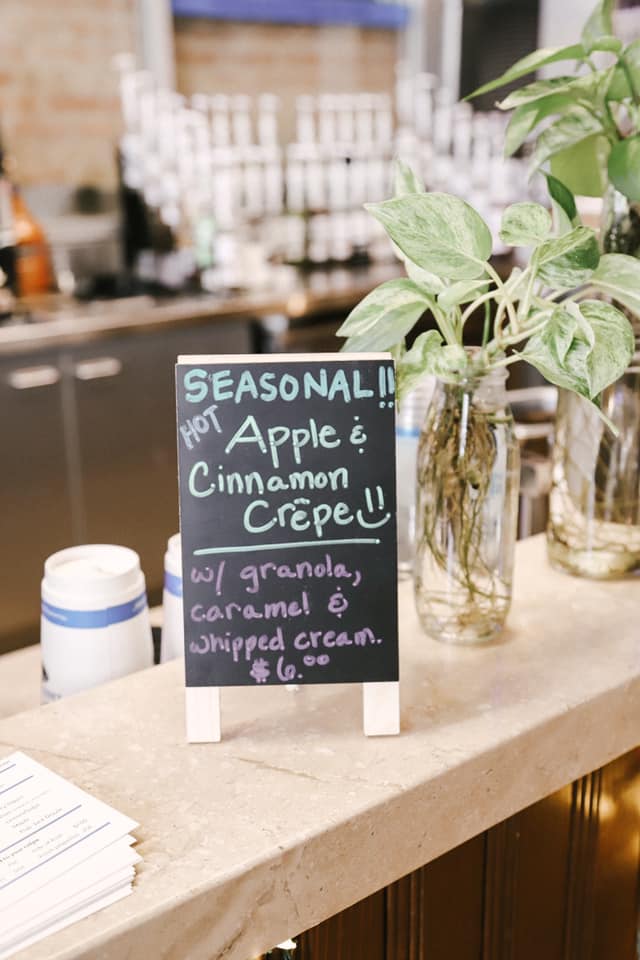 SEASONAL!!
HOT
Apple &
Cinnamon
Crêpe!!
w/ granola,
caramel &
whipped cream.
$6.00